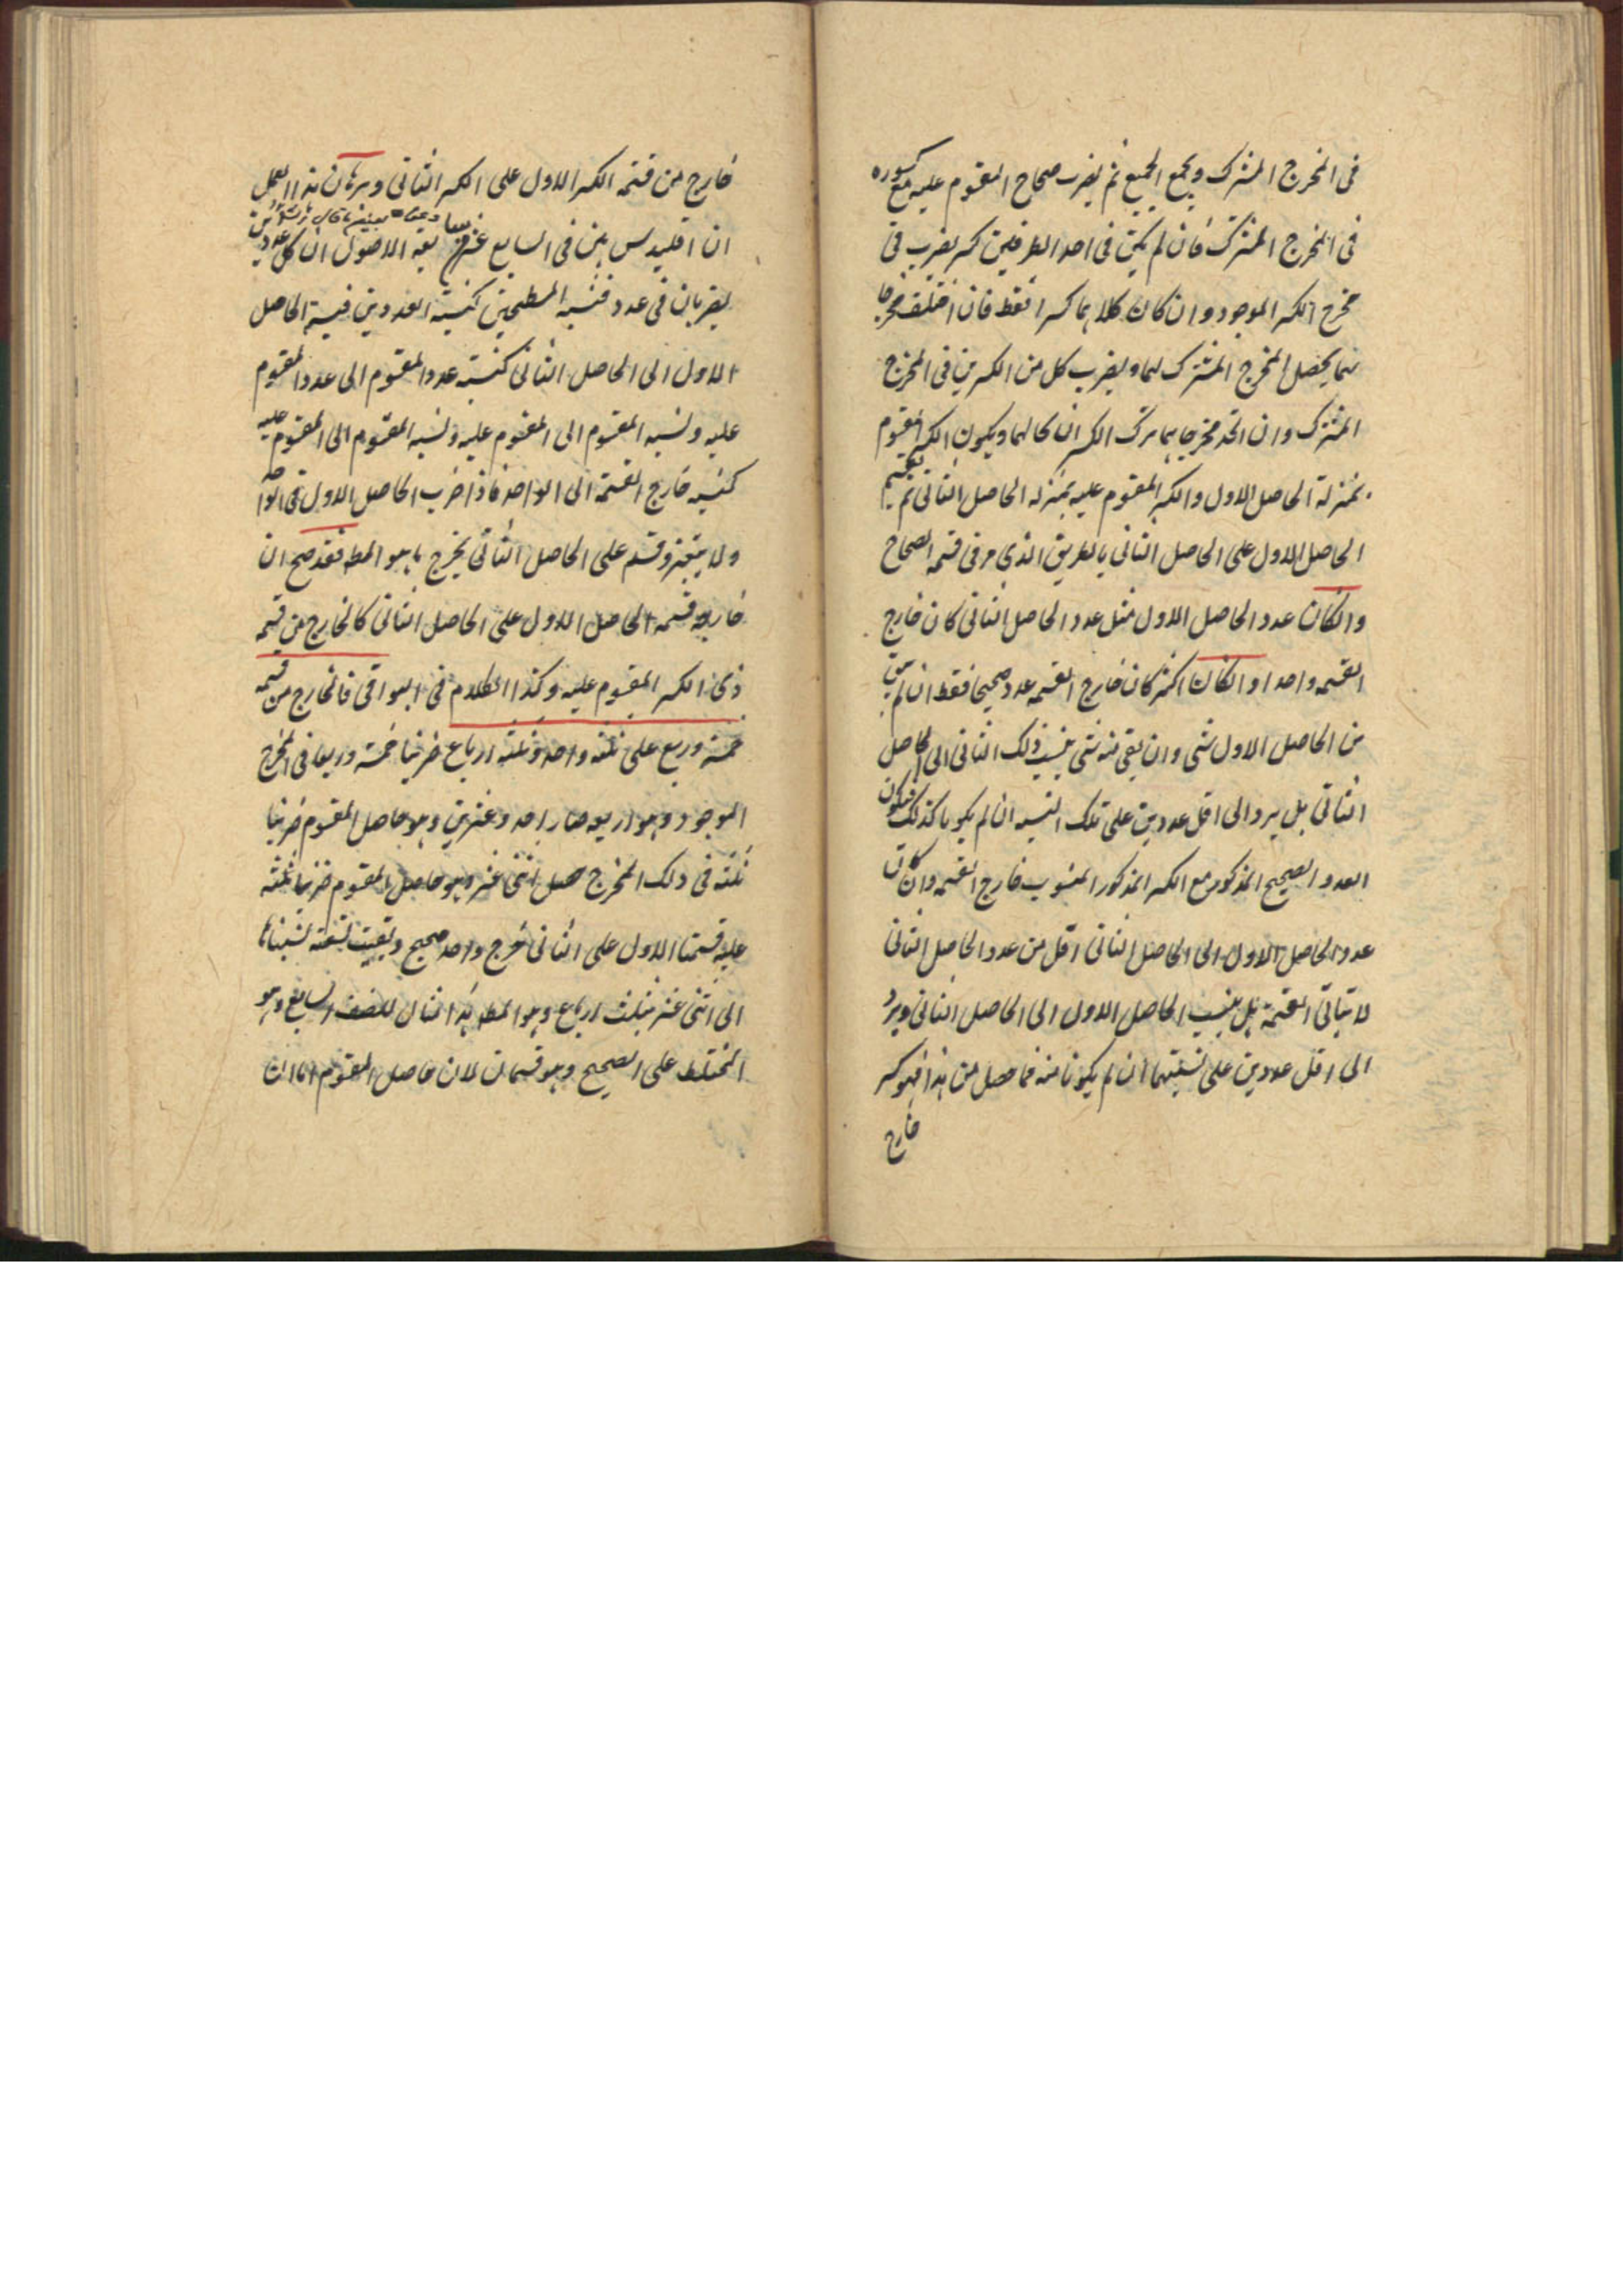 فى المخرج المشترك ويجمع الجميع ثم يضرب صحاح المقسوم عليه مع كسوره
فى المخرج المشترك فان لم يكن فى احد الطرفين كسر يضرب فى
مخرج الكسر الموجود وان كان كلاهما كسرا فقط فان اختلف مخرجا
هما يحصل المخرج المشترك لهما ويضرب كل من الكسرين فى المخرج
المشترك وان اتحد مخرجاهما يترك الكسران كما لهما ويكون الكسر المقسوم
بمنزلة الحاصل الاول والكسر المقسوم عليه بمنزله الحاصل الثانى ثم يقسم
الحاصل الاول على الحاصل الثانى بالطريق الذى مر فى قسمه الصحاح
وان كان عدد الحاصل الاول مثل عدد الحاصل الثانى كان خارج
القسمه واحدا وان كان اكثر كان خارج القسمه عدد صحيحا فقط ان لم يبق
من الحاصل الاول شى وان بقى منه شى ينسب ذلك الثانى الى الحاصل
الثانى بل يرد الى اقل عددين على تلك النسبه ان لم يكونا كذلك فيكون
العدد الصحيح المذكور مع الكسر المذكور المنسوب خارج القسمه وان كان
عدد الحاصل الاول الى الحاصل الثانى اقل من عدد الحاصل الثانى
لا يتأتى القسمة بل ينسب الحاصل الاول الى الحاصل الثانى ويرد
الى اقل عددين على نسبتهما ان لم يكونا منه فما حصل من هذا فهو كسر
خارج
خارج من قسمه الكسر الاول على الكسر الثانى وبرهان هذا العمل
ان اقليدس بين فى السابع عشر من سابعه الاصول ان كل عددين
يضربان فى عدد فنسبه المسطحين كنسبة العددين فنسبة الحاصل
الاول الى الحاصل الثانى كنسبته عدد المقسوم الى عدد المقسوم
عليه ونسبه المقسوم الى المقسوم عليه ونسبه المقسوم الى المقسوم عليه
كنسبه خارج القسمة الى الواحد فاذا ضرب الحاصل الاول فى الواحد
ولا يتغير وقسم على الحاصل الثانى يخرج ما هو المط فقد صح ان
خارج قسمه الحاصل الاول على الحاصل الثانى كالخارج من قسمه
ذى الكسر المقسوم عليه وكذا الكلام فى البواقى فالخارج من قسمه
خمسة وربع على ثلثه واحد وثلثه ارباع ضربنا خمسة وربعا فى المخرج
الموجود وهو اربعه صار احد وعشرين وهو حاصل المقسوم ضربنا
ثلثه فى ذلك المخرج حصل اثنى عشر وهو حاصل المقسوم ضربنا ثلثه
عليه قسمنا الاول على الثانى خرج واحد صحيح وبقيت تسعة نسبناها
الى اثنى عشر بثلث ارباع وهو المط هذا مثال للصنف السابع وهو
المختلط على الصحيح وهو قسمان لان حاصل المقسوم اما ان